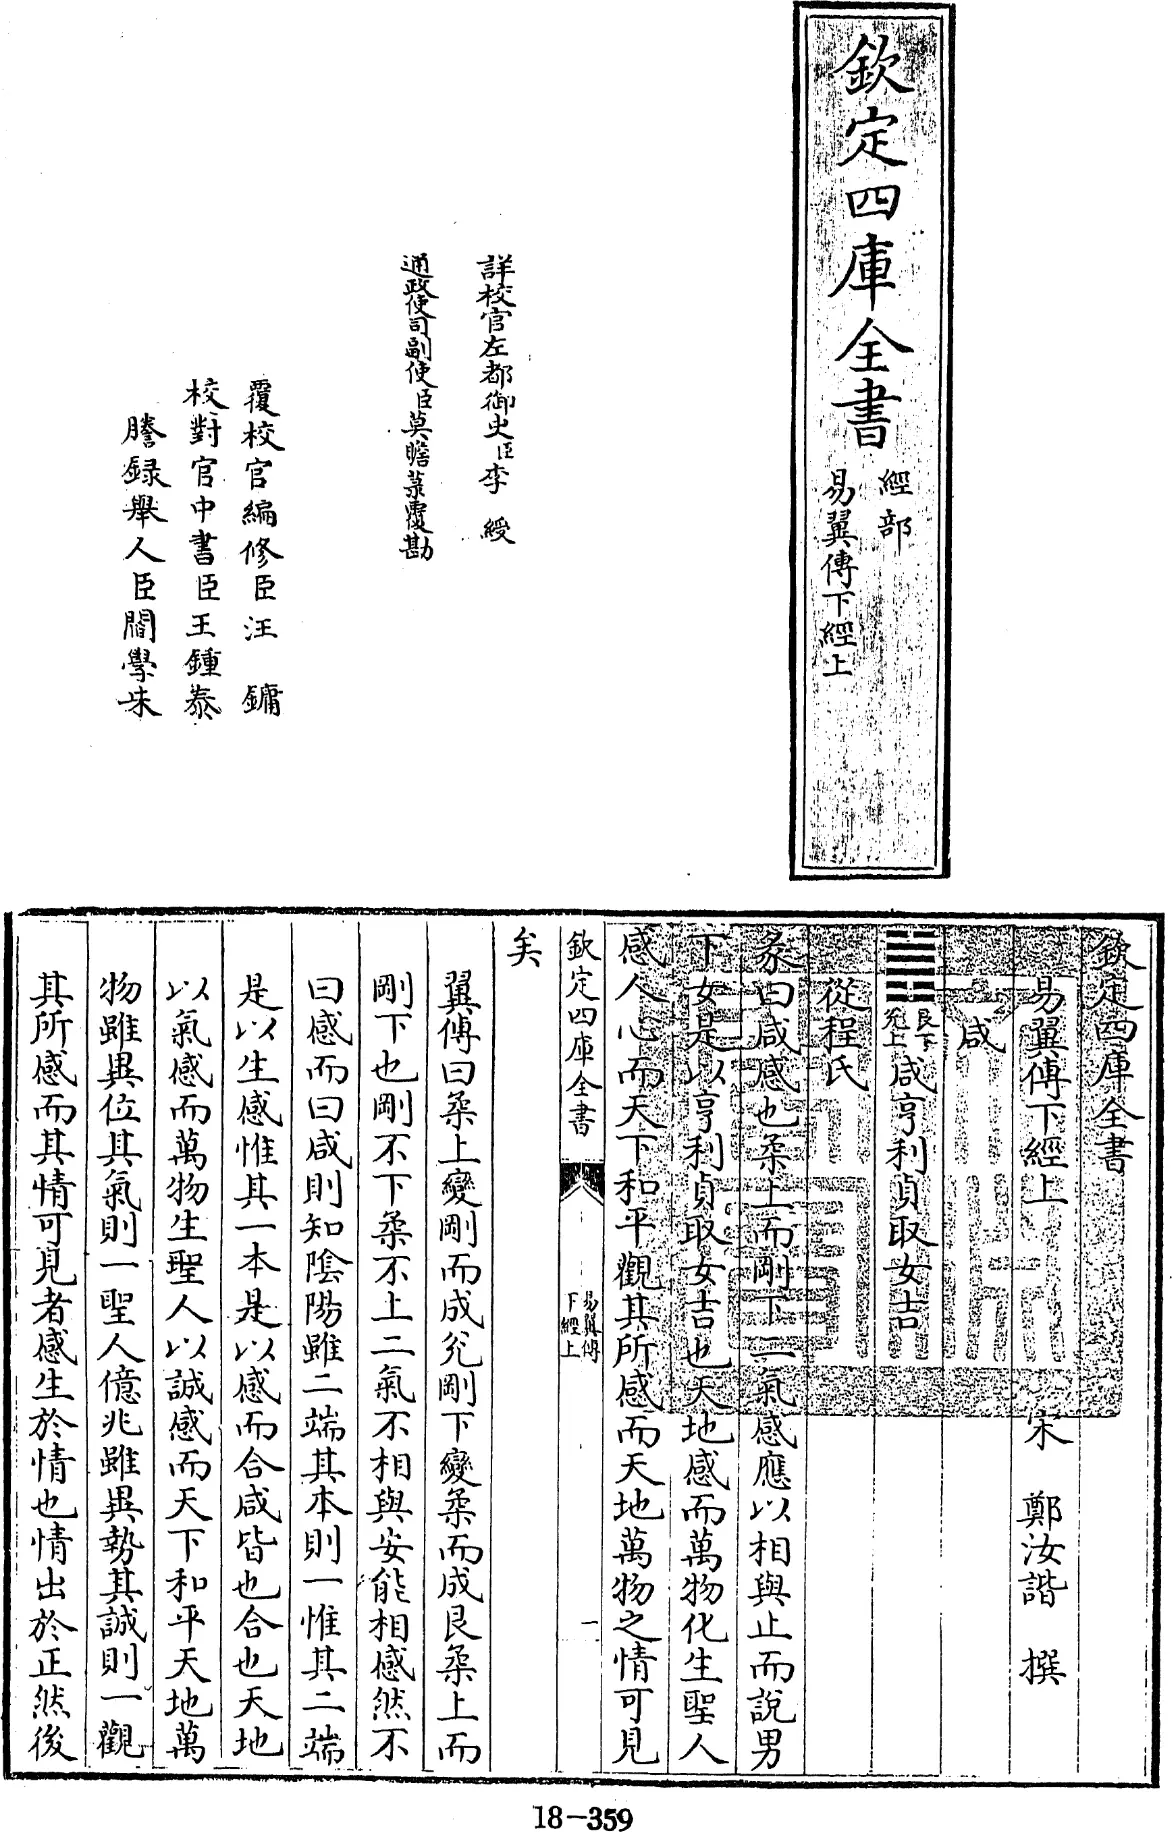 欽定四庫全書
經部
易翼傳下經上
詳校官左都御史臣李綬
通政使司副使臣莫瞻菉覆勘
覆校官編修臣汪鏞
校對官中書臣王鍾泰
謄録舉人臣閻學朱
欽定四庫全書
易翼傳下經上 宋 鄭汝諧 撰
咸
艮下兌上咸亨利貞取女吉
從程氏
彖曰咸感也柔上而剛下二氣感應以相與止而說男
下女是以亨利貞取女吉也天地感而萬物化生聖人
感人心而天下和平觀其所感而天地萬物之情可見
欽定四庫全書 易翼傳下經上 一
矣
翼傳曰柔上變剛而成兌剛下變柔而成艮柔上而
剛下也剛不下柔不上二氣不相與安能相感然不
曰感而曰咸則知陰陽雖二端其本則一惟其二端
是以生感惟其一本是以感而合咸皆也合也天地
以氣感而萬物生聖人以誠感而天下和平天地萬
物雖異位其氣則一聖人億兆雖異勢其誠則一觀
其所感而其情可見者感生於情也情出於正然後
18-359